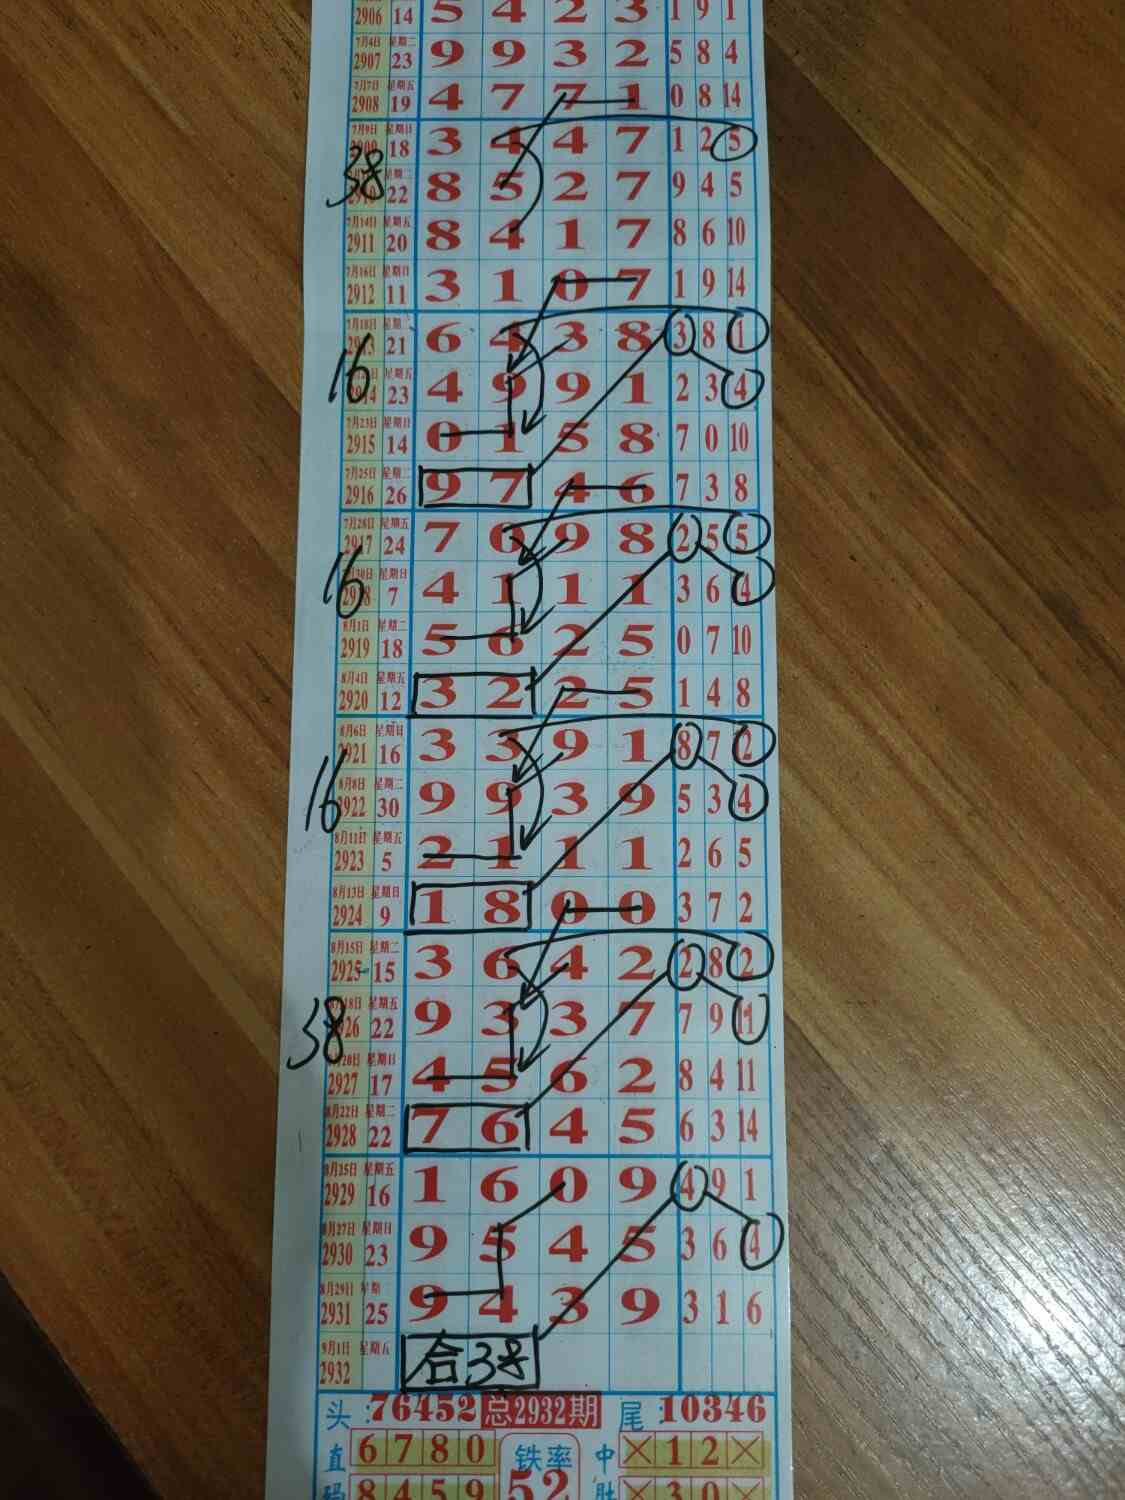 2906 14 5 4 2 3 1 9 1
7月4日 星期二
2907 23 9 9 3 2 5 8 4
7月7日 星期五
2908 19 4 7 7 1 0 8 14
7月9日 星期日
18 3 4 4 7 1 2 5
38
22 8 5 2 7 9 4 5
7月14日 星期五
2911 20 8 4 1 7 8 6 10
7月16日 星期日
2912 11 3 1 0 7 1 9 14
7月18日 星期二
21 6 4 3 8 3 8 1
16
星期五
23 4 9 9 1 2 3 4
7月23日 星期日
2915 14 0 1 5 8 7 0 10
7月25日 星期二
2916 26 9 7 4 6 7 3 8
7月28日 星期五
2917 24 7 6 9 8 2 5 5
16
星期日
7 4 1 1 1 3 6 4
8月1日 星期二
2919 18 5 6 2 5 0 7 10
8月4日 星期五
2920 12 3 2 2 5 1 4 8
8月6日 星期日
2921 16 3 3 9 1 8 7 2
16
8月8日 星期二
2922 30 9 9 3 9 5 3 4
8月11日 星期五
2923 5 2 1 1 1 2 6 5
8月13日 星期日
2924 9 1 8 0 0 3 7 2
8月15日 星期二
2925 15 3 6 4 2 2 8 2
38
星期五
22 9 3 3 7 7 9 11
星期日
2927 17 4 5 6 2 8 4 11
8月22日 星期二
2928 22 7 6 4 5 6 3 14
8月25日 星期五
2929 16 1 6 0 9 4 9 1
8月27日 星期日
2930 23 9 5 4 5 3 6 4
8月29日 星期
2931 25 9 4 3 9 3 1 6
9月1日 星期五
2932 合38
头:76452 总2932期 尾:10346
直 6 7 8 0 铁率 中 × 1 2 ×
码 8 4 5 9 52 肚 × 3 0 ×